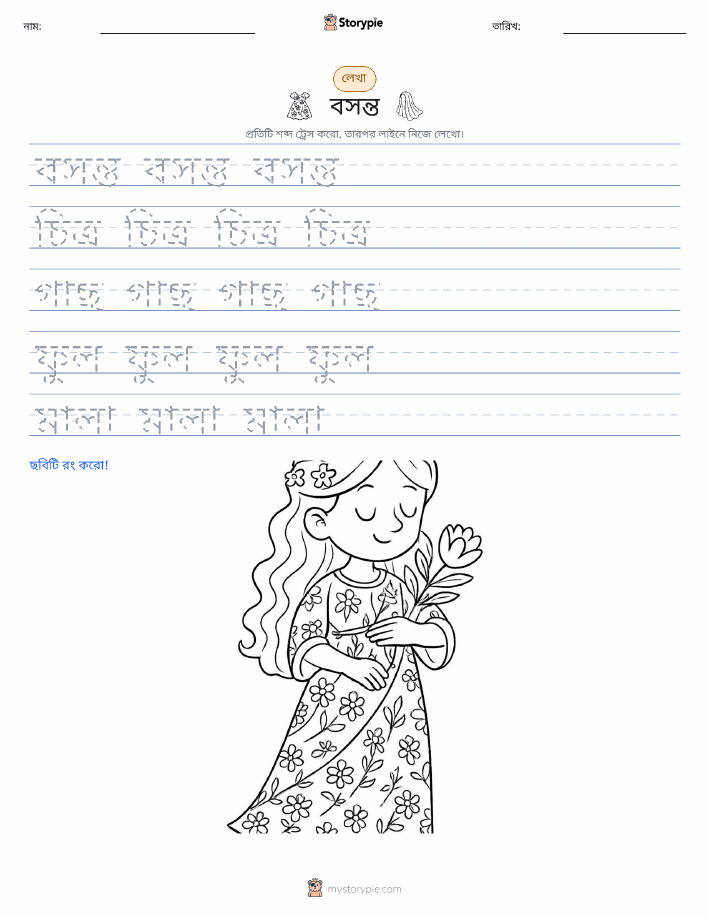 নাম: Storypie তারিখ:
লেখা
বসন্ত
প্রতিটি শব্দ ট্রেস করো, তারপর লাইনে নিজে লেখো।
বসন্ত বসন্ত বসন্ত
চিত্র চিত্র চিত্র চিত্র
গাছ গাছ গাছ গাছ
ফুল ফুল ফুল ফুল
মালা মালা মালা
ছবিটি রং করো!
mystorypie.com